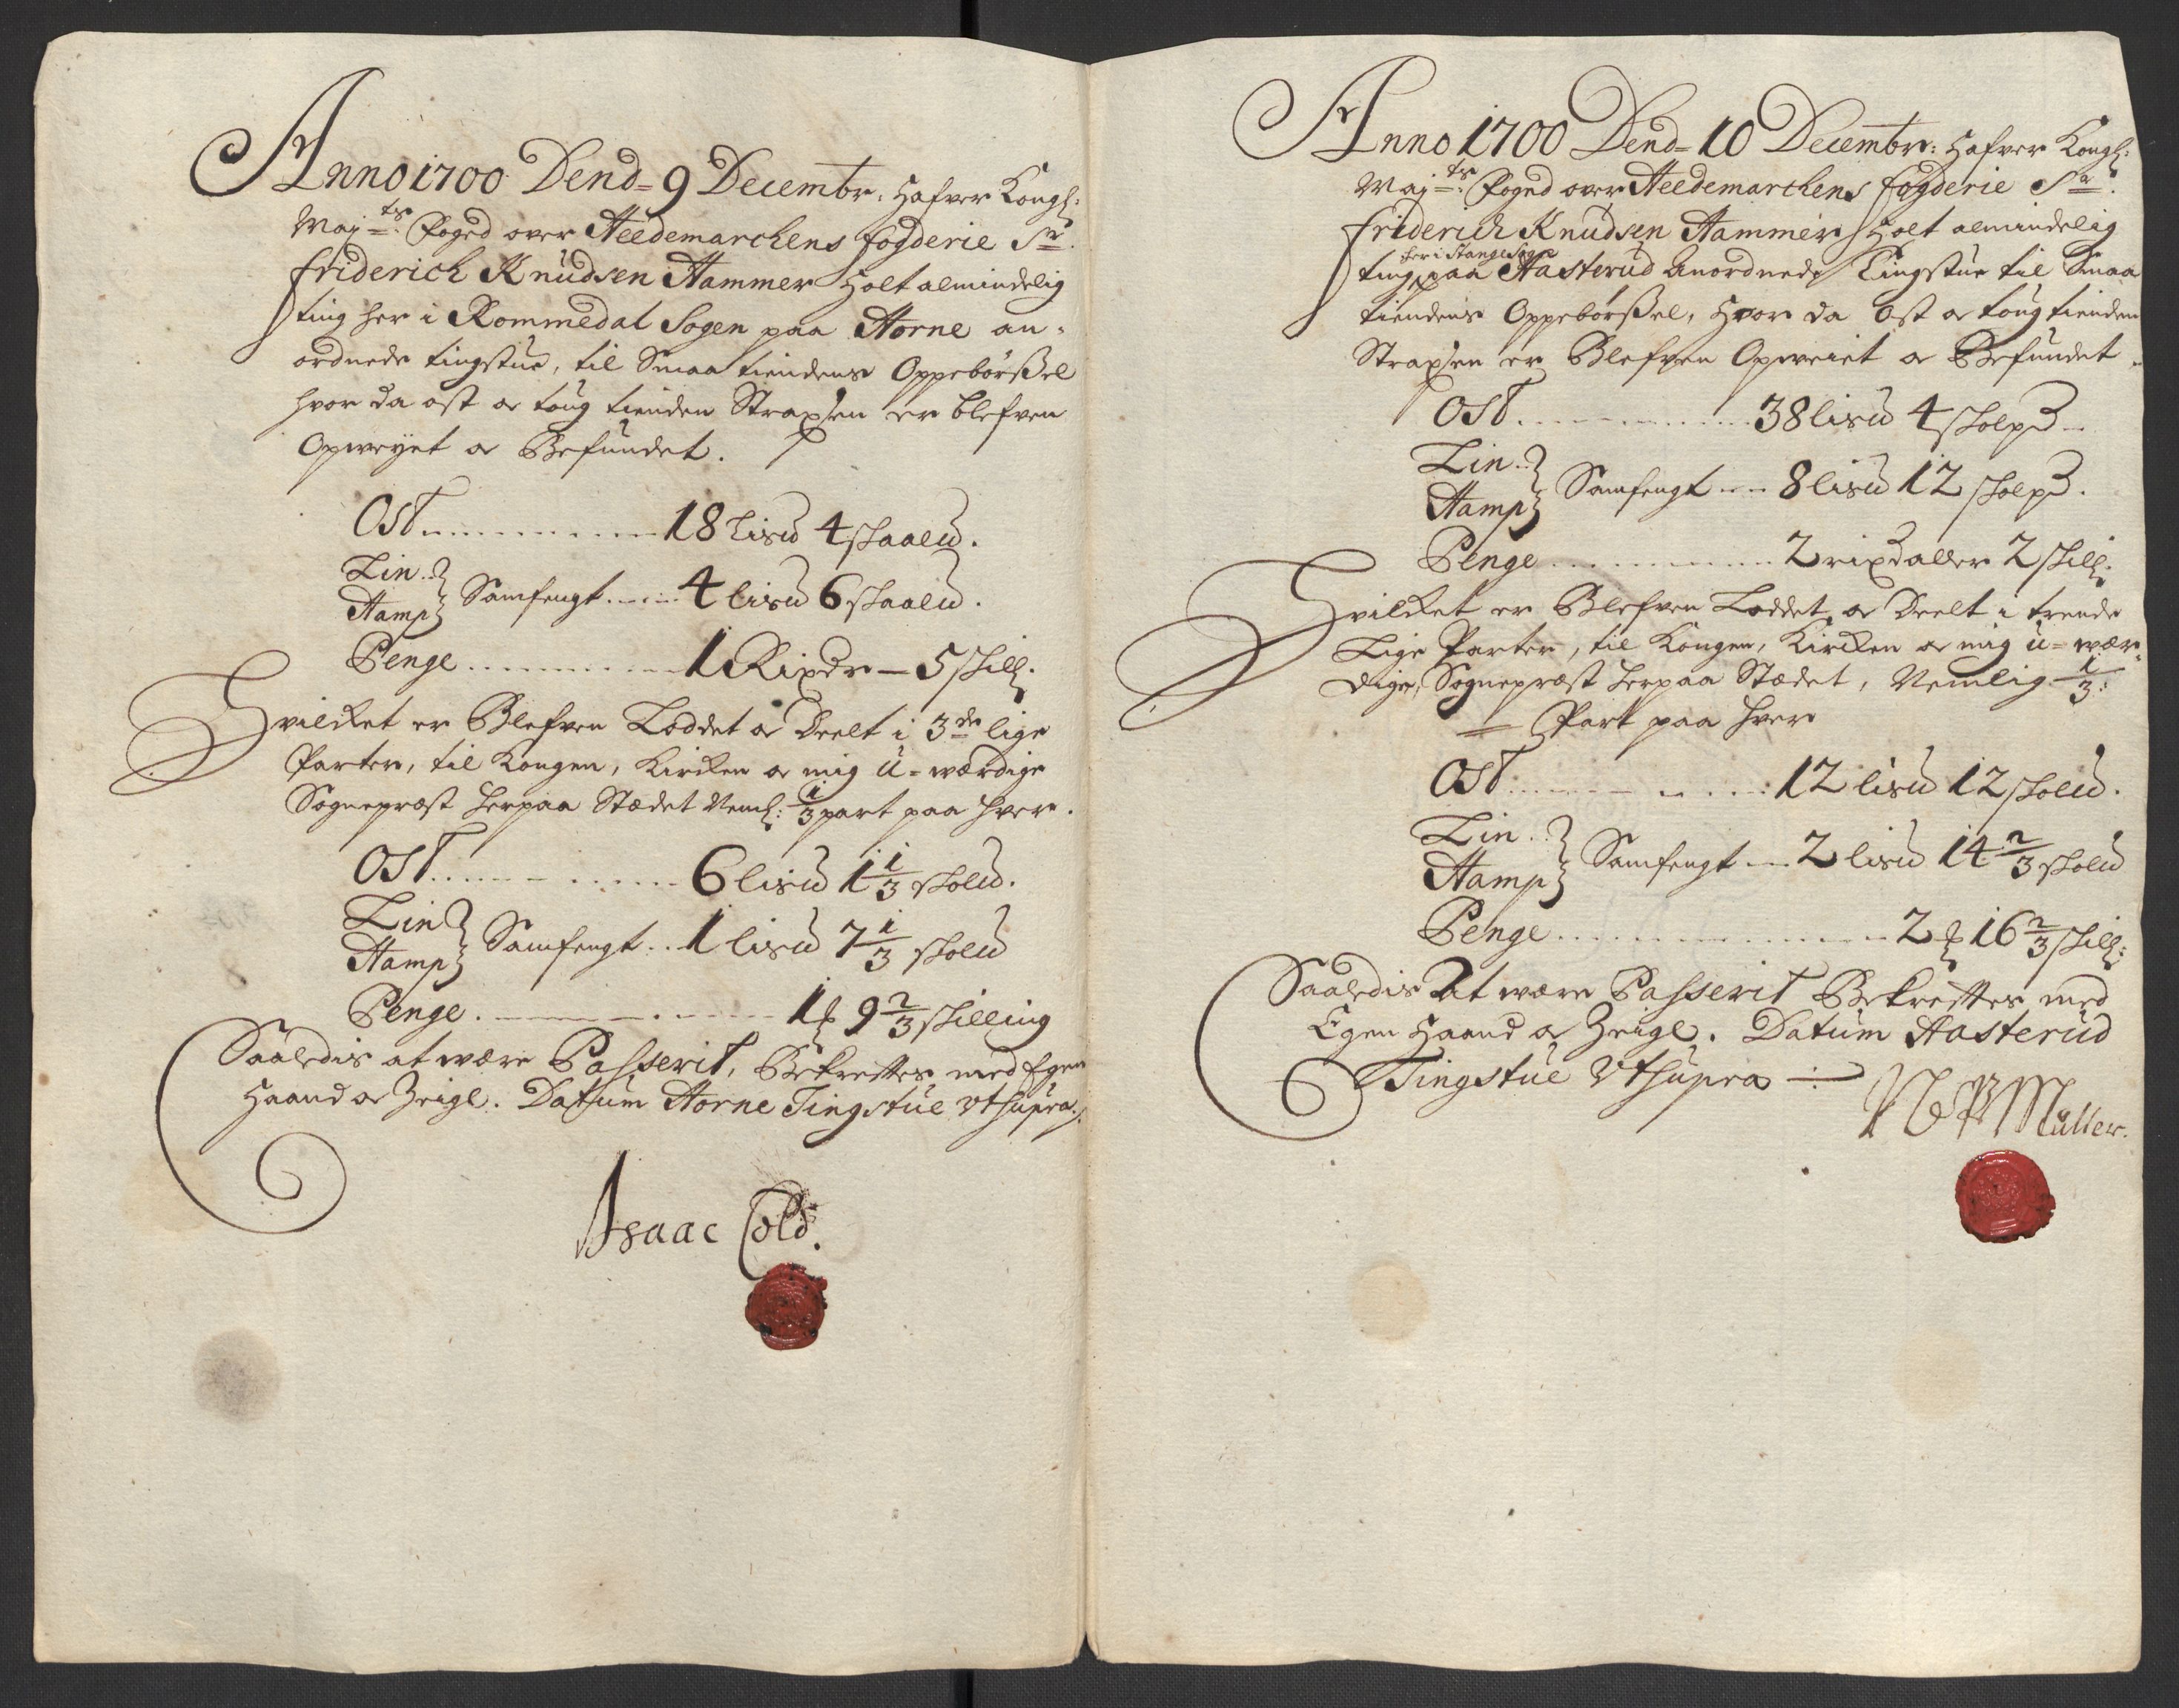 Anno 1700 Dend = 9 Decembr: Hafver Kongl:
Maj:ts Foged over Heedemarchens fogderie Sr.
friderich Knudsen Hammer Holt almindelig
ting her i Rommedal Sogen paa Horne an-
ordnede tingstue, til Smaa tiendens Oppebørßel
hvor da ost oc toug tienden Straxsen er blefven
Opweyet oc Befundet.
Ost 18 Lisu 4 skaalu.
Lin
Hamp Samfengt 4 lisu 6 skaalu.
Penge 1 Rixdr - 5 skill.
Hvilket er Blefven Loddet oc Deelt i 3de lige
Parter, til Kongen, Kircken oc mig u=wærdige
Sogneprest herpaa Stædet Neml: 1/3 part paa hver.
Ost 6 lisu 1 1/3 skolu.
Lin
Hamp Samfengt 1 lisu 7 1/3 skolu
Penge 1 ℔ 9 2/3 skilling
Saaledis at were Passerit, Bekreftes med Egen
Haand oc Zeigl. Datum Horne Tingstue Vtsupra.
Isaac Cold.
Anno 1700 Dend = 10 Decembr: Hafver Kongl:
Maj:ts Foged over Heedemarchens fogderie Sr.
friderich Knudsen Hammer Holt almindelig
her i Stange Sogn
ting paa Aasterud Anordnede Tingstue til Smaa
tiendens Oppebørßel, Hvor da Ost oc toug tienden
Straxsen er Blefven Opweiet oc Befundet
Ost 38 lisu 4 skolpd
Lin
Hamp Samfengt 8 lisu 12 skolpd.
Penge 2 rixdaller 2 skill.
Hvilket er Blefven Loddet oc Deelt i trende
Lige Parter, til Kongen, Kircken oc mig u=wær-
dige, Sogneprest herpaa Stædet, Nemlig 1/3:
Part paa hver
Ost 12 lisu 12 skolu.
Lin
Hamp Samfengt 2 lisu 14 2/3 skolu
Penge 2 ℔ 16 2/3 skill:
Saaledis At were Passerit Bekreftes med
Egen Haand oc Zeigl. Datum Aasterud
Tingstue Vtsupra
Müller.